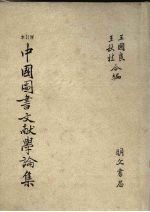 增訂本
中國圖書文獻學論集
王國良
王秋桂 合編
明文書局